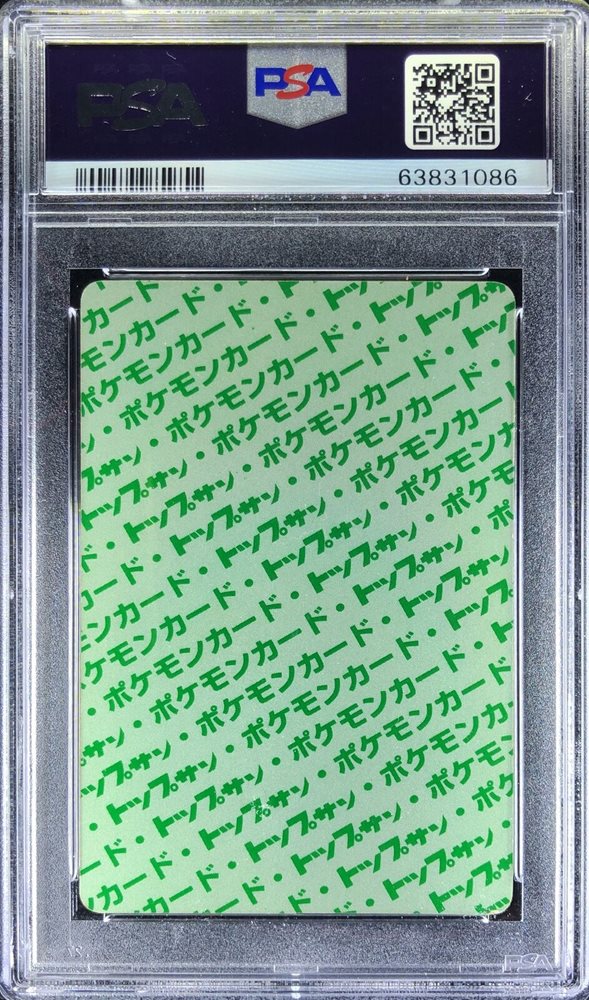 PSA
PSA
63831086
カード
モンカード・トップ
ポケモンカード・トップサン
・ポケモンカード・トップサン
プサン・ポケモンカード・トップ
トップサン・ポケモンカード・ト
ド・トップサン・ポケモンカード・
ード・トップサン・ポケモンカード
ンカード・トップサン・ポケモンカ
ケモンカード・トップサン・ポケモ
・ポケモンカード・トップサン・ポ
サン・ポケモンカード・トップサン
トップサン・ポケモンカード・トップ
・トップサン・ポケモンカード・
カード・トップサン・ポケモンカー
カード・トップサン・ポケモン
ード・トップサン・ポケ
トップサン
PSA